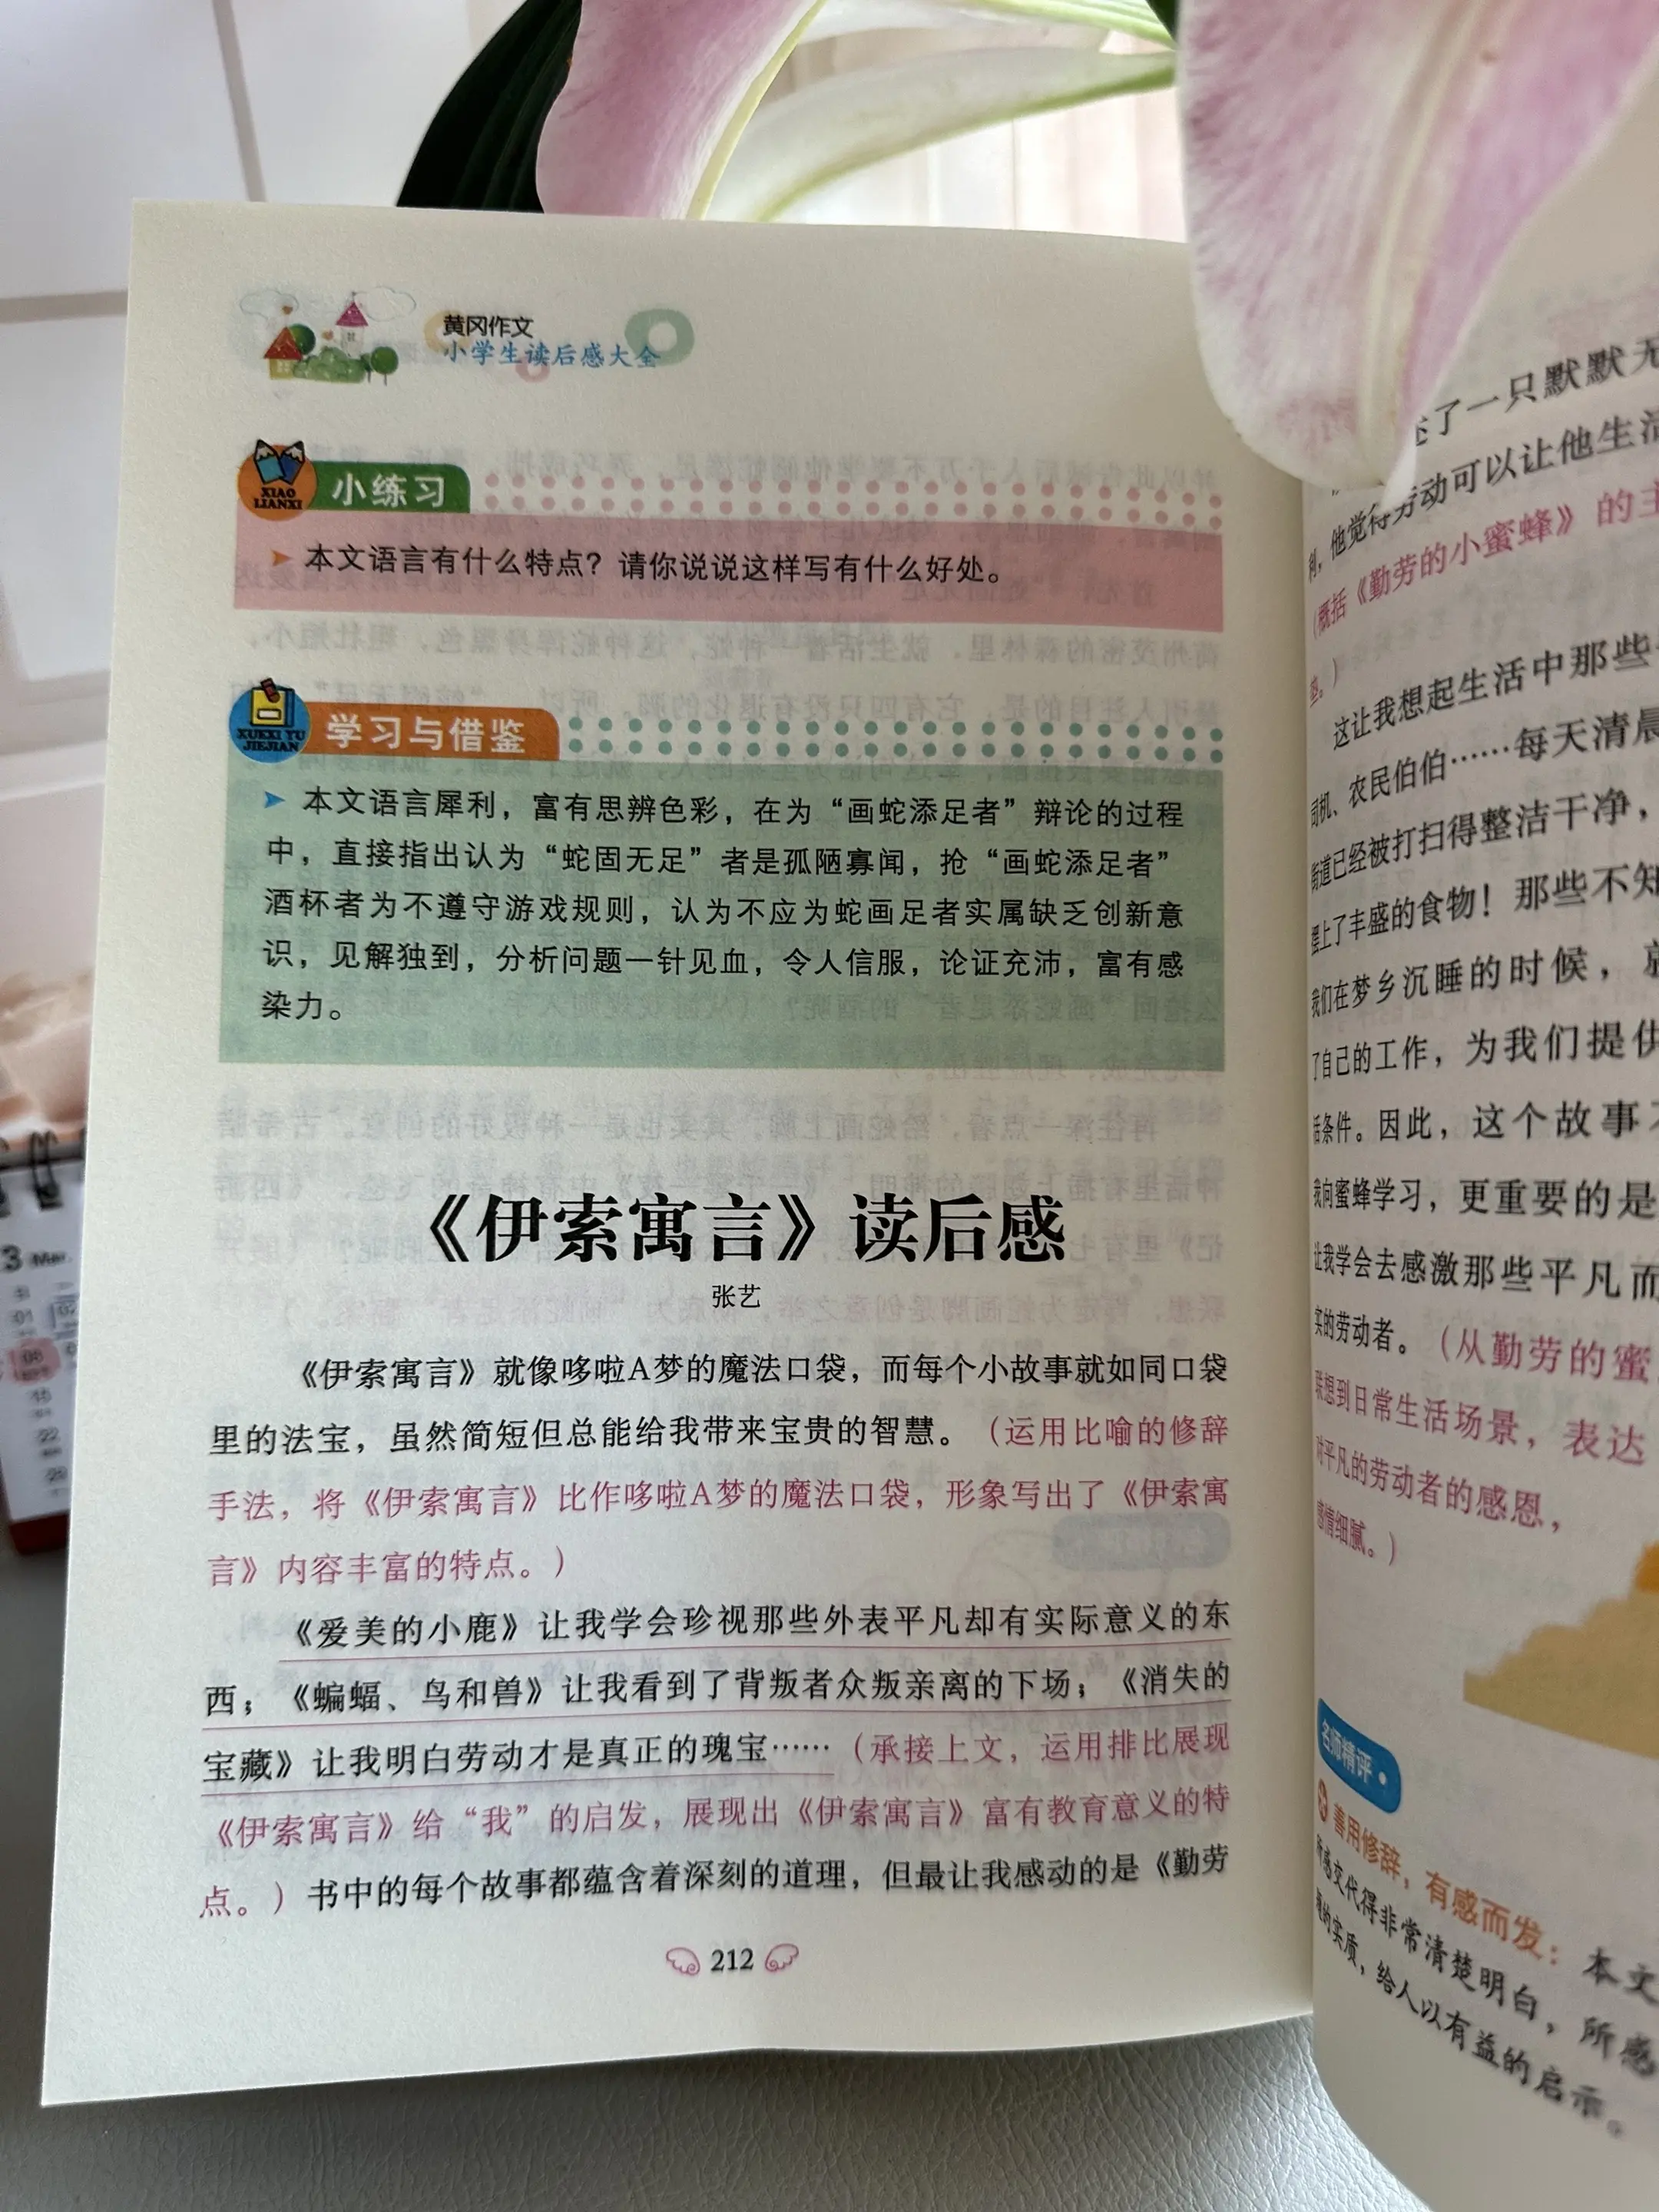 黄冈作文
小学生读后感大全
XIAO
LIANXI
小练习
本文语言有什么特点？请你说说这样写有什么好处。
XUEXI YU
JIEJIAN
学习与借鉴
本文语言犀利，富有思辨色彩，在为“画蛇添足者”辩论的过程
中，直接指出认为“蛇固无足”者是孤陋寡闻，抢“画蛇添足者”
酒杯者为不遵守游戏规则，认为不应为蛇画足者实属缺乏创新意
识，见解独到，分析问题一针见血，令人信服，论证充沛，富有感
染力。
《伊索寓言》读后感
张艺
《伊索寓言》就像哆啦A梦的魔法口袋，而每个小故事就如同口袋
里的法宝，虽然简短但总能给我带来宝贵的智慧。（运用比喻的修辞
手法，将《伊索寓言》比作哆啦A梦的魔法口袋，形象写出了《伊索寓
言》内容丰富的特点。）
《爱美的小鹿》让我学会珍视那些外表平凡却有实际意义的东
西；《蝙蝠、鸟和兽》让我看到了背叛者众叛亲离的下场；《消失的
宝藏》让我明白劳动才是真正的瑰宝……（承接上文，运用排比展现
《伊索寓言》给“我”的启发，展现出《伊索寓言》富有教育意义的特
点。）书中的每个故事都蕴含着深刻的道理，但最让我感动的是《勤劳
212
了一只默默无
利，他觉得劳动可以让他生活
（概括《勤劳的小蜜蜂》的主
。）
这让我想起生活中那些
司机、农民伯伯……每天清晨
街道已经被打扫得整洁干净，
上了丰盛的食物！那些不知
我们在梦乡沉睡的时候，就
了自己的工作，为我们提供
活条件。因此，这个故事不
我向蜜蜂学习，更重要的是
让我学会去感激那些平凡而
实的劳动者。（从勤劳的蜜
联想到日常生活场景，表达
对平凡的劳动者的感恩，
感情细腻。）
名师精评
善用修辞，有感而发：本文
所感交代得非常清楚明白，所感
的实质，给人以有益的启示。
3 Mar.
01
02
08
15
22